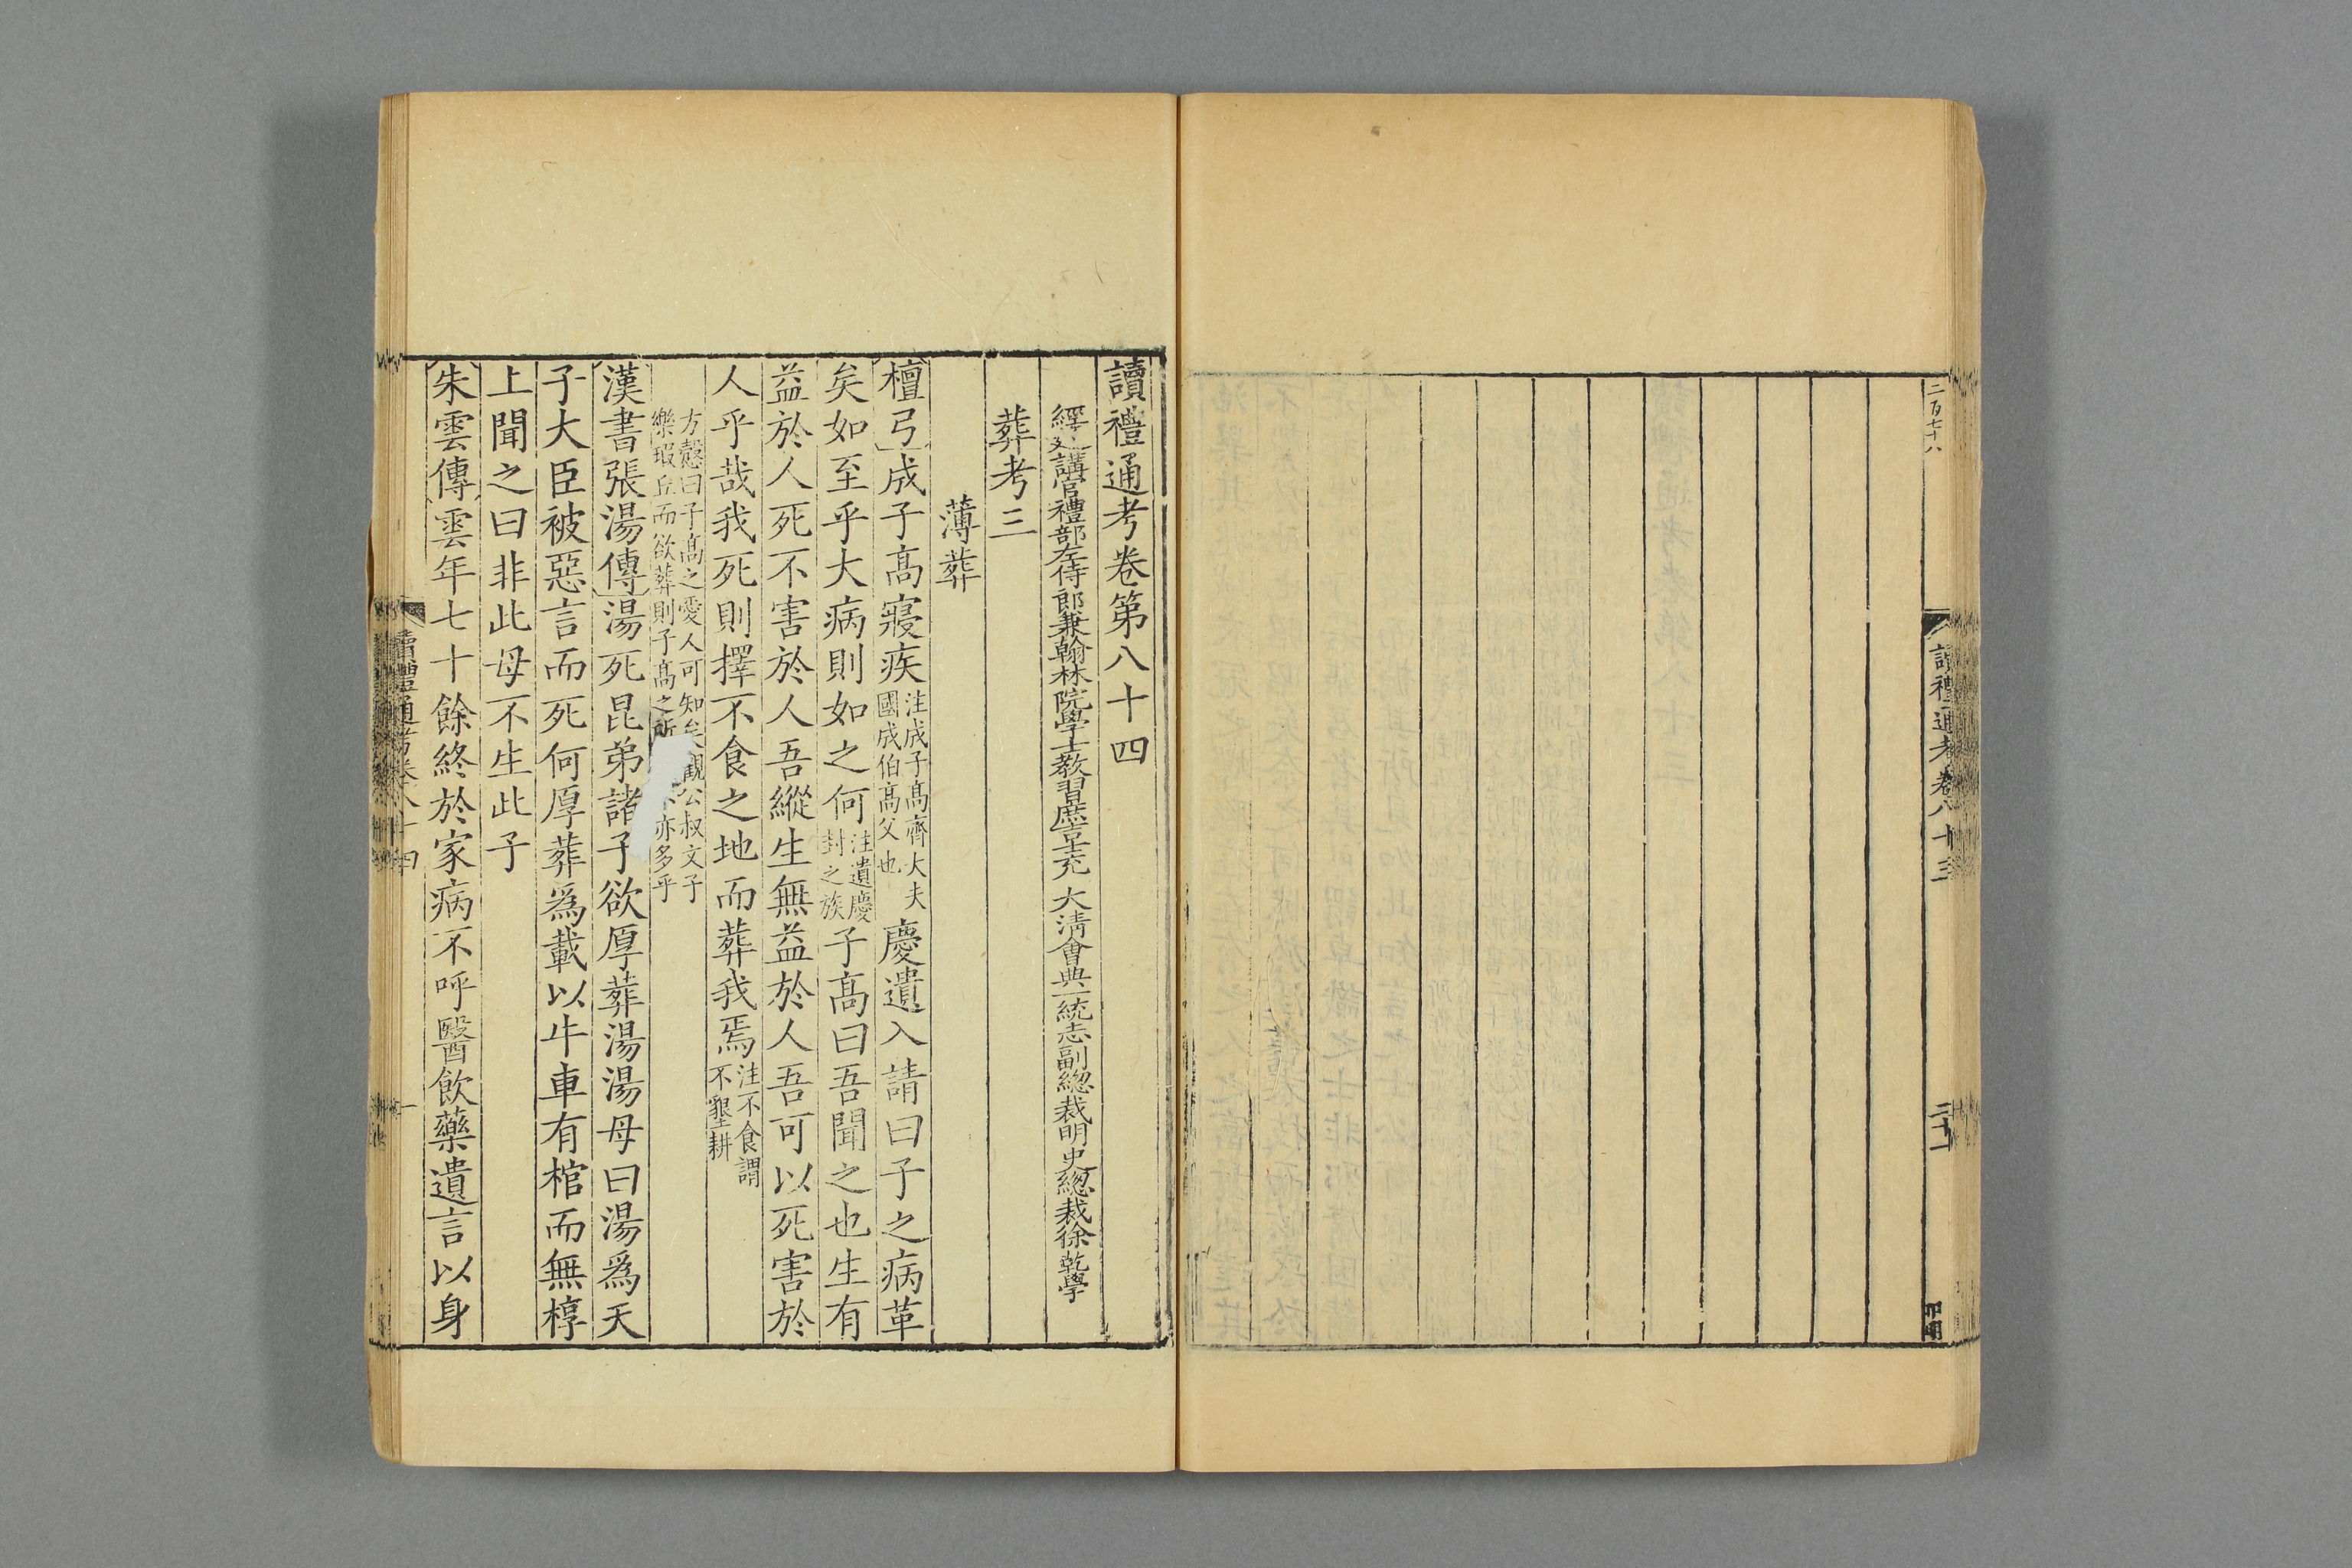 二百七十八
讀禮通考卷八十三
讀禮通考卷第八十四
經筵講官禮部左侍郎兼翰林院學士教習庶吉士充 大清會典一統志副總裁明史總裁徐乾學
葬考三
薄葬
檀弓成子高寢疾注成子高齊大夫國成伯高父也慶遺入請曰子之病革
矣如至乎大病則如之何注遺慶封之族子高曰吾聞之也生有
益於人死不害於人吾縱生無益於人吾可以死害於
人乎哉我死則擇不食之地而葬我焉注不食謂不墾耕
方慤曰子高之愛人可知矣觀公叔文子
樂瑕丘而欲葬則子高之所亦多乎
漢書張湯傳湯死昆弟諸子欲厚葬湯湯母曰湯爲天
子大臣被惡言而死何厚葬爲載以牛車有棺而無椁
上聞之曰非此母不生此子
朱雲傳雲年七十餘終於家病不呼醫飲藥遺言以身
讀禮通考卷八十四
一